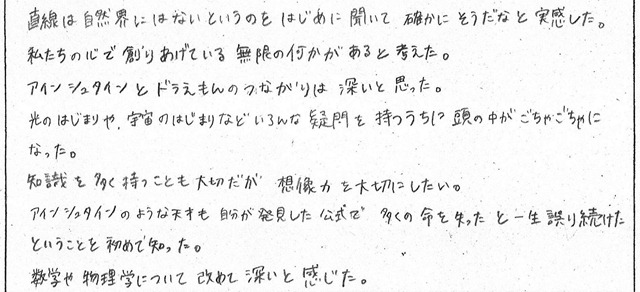 直線は自然界にはないというのをはじめに聞いて確かにそうだなと実感した。
私たちの心で創りあげている無限の何かがあると考えた。
アインシュタインとドラえもんのつながりは深いと思った。
光のはじまりや、宇宙のはじまりなどいろんな疑問を持つうちに頭の中がごちゃごちゃに
なった。
知識を多く持つことも大切だが想像力を大切にしたい。
アインシュタインのような天才も自分が発見した公式で多くの命を失ったと一生誤り続けた
ということを初めて知った。
数学や物理学について改めて深いと感じた。